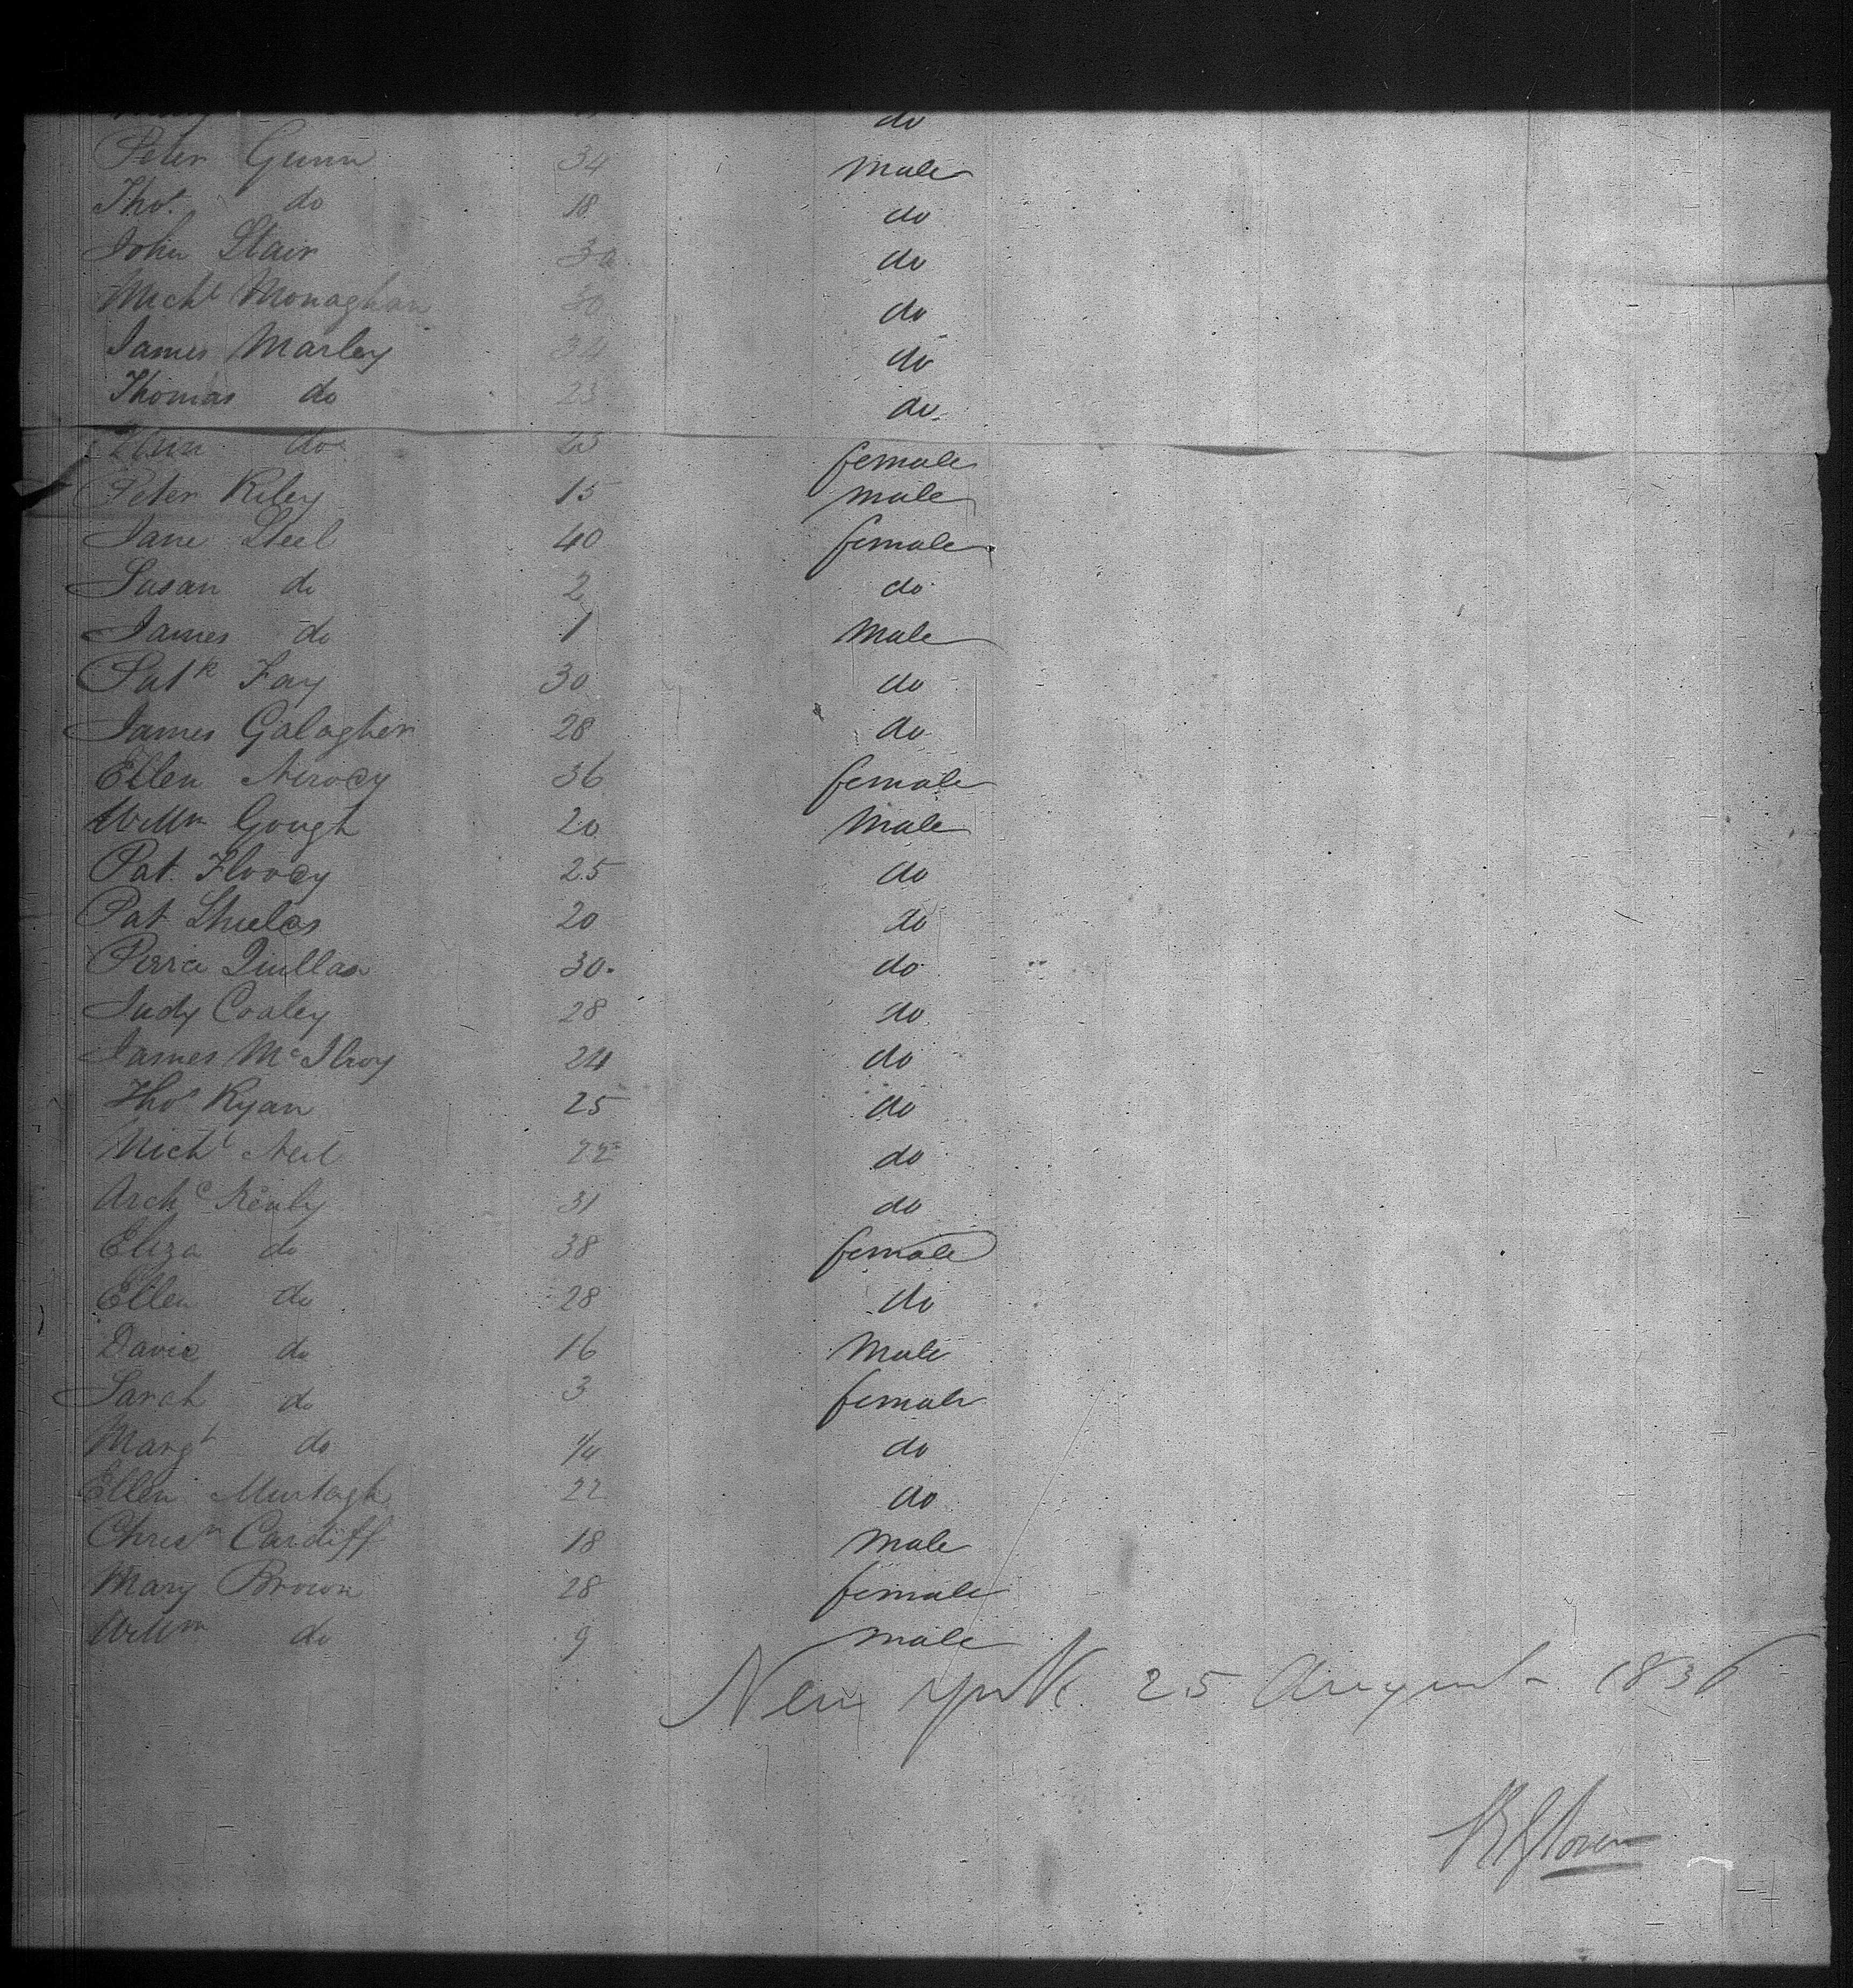 do
Peter Gunn 34 Male
Thos. do 18 do
John Stair 30 do
Michl Monaghan 30 do
James Marley 34 do
Thomas do 23 do
Ann do 25 female
Peter Riley 15 male
Jane Steel 40 female
Susan do 2 do
James do 1 Male
Patk Fay 30 do
James Galagher 28 do
Ellen 36 female
Willm Gough 20 Male
Pat. Flooey 25 do
Pat Shields 20 do
Quillan 30. do
Judy Coaley 28 do
James McIlroy 24 do
Thos Ryan 25 do
Michl Neil 22 do
Archd Kealy 31 do
Eliza do 38 female
Ellen do 28 do
David do 16 Male
Sarah do 3 female
Margt do 1/4 do
Ellen Murtagh 22 do
Chrisr Cardiff 18 Male
Mary Brown 28 female
Willm do 9 male
New York 25 August 1836